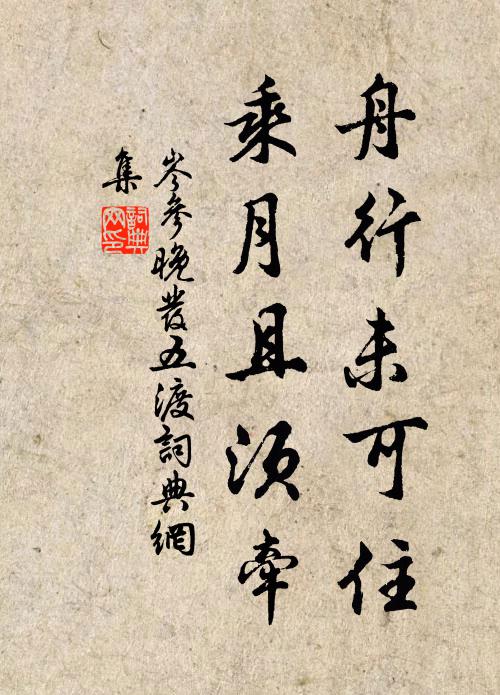 舟行未可住
乘月且須牽
岑參晚發五渡詞典網
集
詞典
网印